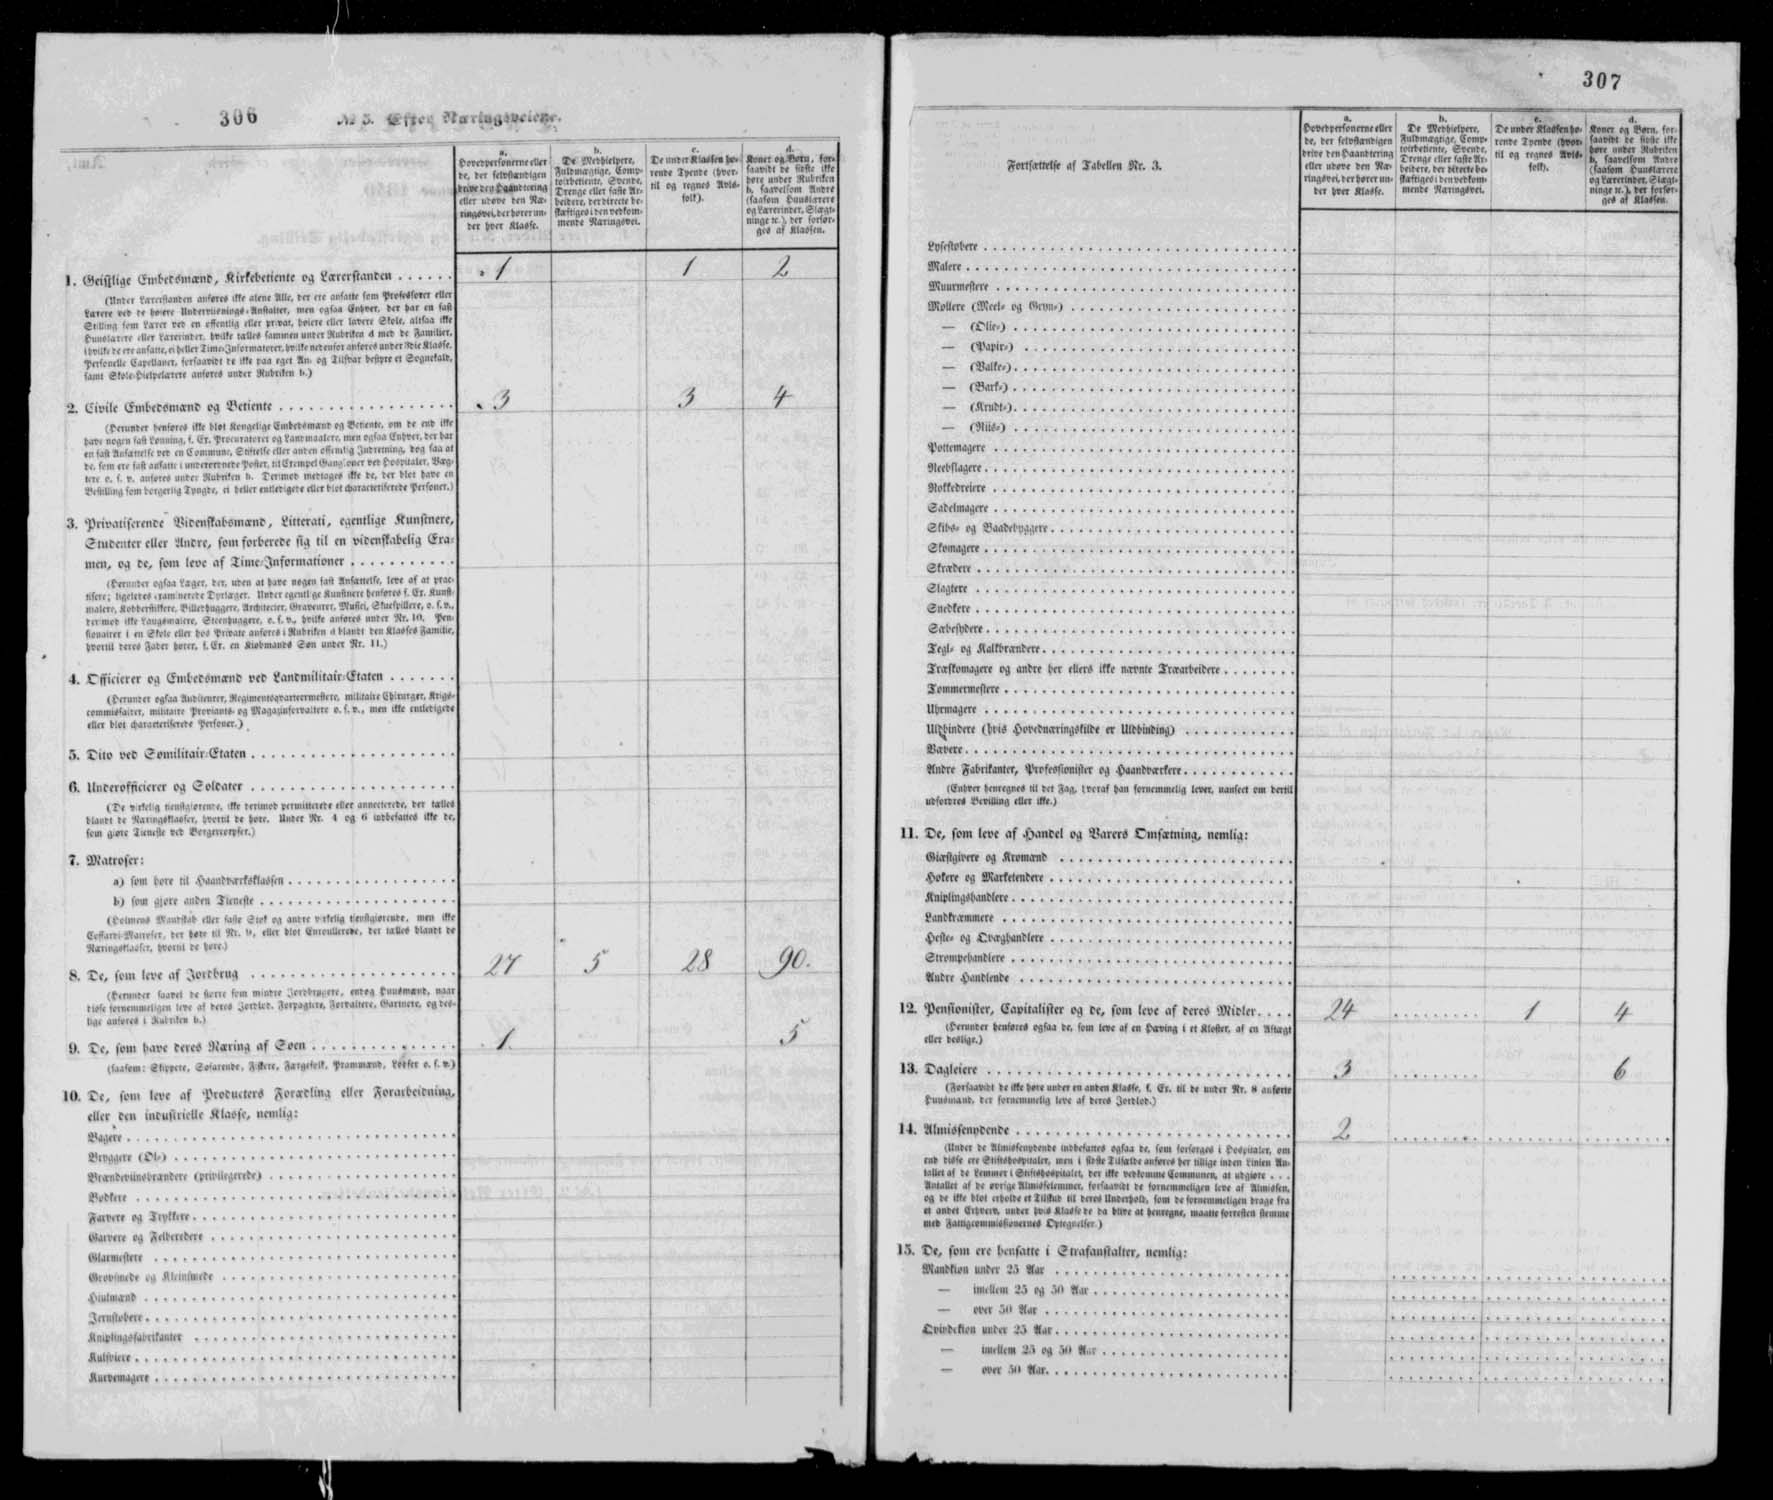 306
№ 3. Efter Næringsveiene.
a.
Hovedpersonerne eller
de, der selvstændigen
drive den Haandtering
eller udøve den Næ-
ringsvei, der hører un-
der hver Klasse.
b.
De Medhjelpere,
Fuldmægtige, Comp-
toirbetiente, Svende,
Drenge eller faste Ar-
beidere, der directe be-
skæftiges i den vedkom-
mende Næringsvei.
c.
De under Klassen hø-
rende Tyende (hvor-
til og regnes Avls-
folk).
d.
Koner og Børn, for-
saavidt de sidste ikke
høre under Rubriken
b, saavelsom Andre
(saasom Huuslærere
og Lærerinder, Slægt-
ninge ec.), der forsør-
ges af Klassen.
1. Geistlige Embedsmænd, Kirkebetiente og Lærerstanden . . . . . . 1 1 2
(Under Lærerstanden anføres ikke alene Alle, der ere ansatte som Professorer eller
Lærere ved de høiere Underviisnings-Anstalter, men ogsaa Enhver, der har en fast
Stilling som Lærer ved en offentlig eller privat, høiere eller lavere Skole, altsaa ikke
Huuslærere eller Lærerinder, hvilke tælles sammen under Rubriken d med de Familier,
i hvilke de ere ansatte, ei heller Time-Informatorer, hvilke nedenfor anføres under 3die Klasse.
Personelle Capellaner, forsaavidt de ikke paa eget An- og Tilsvar bestyre et Sognekald,
samt Skole-Hjelpelærere anføres under Rubriken b.)
2. Civile Embedsmænd og Betiente . . . . . . 3 3 4
(Herunder henføres ikke blot Kongelige Embedsmænd og Betiente, om de end ikke
have nogen fast Lønning, s. Ex. Procuratorer og Landmaalere, men ogsaa Enhver, der har
en fast Ansættelse ved en Commune, Stiftelse eller anden offentlig Indretning, dog saa at
de, som ere fast ansatte i underordnede Poster, til Exempel Gangkoner ved Hospitaler, Væg-
tere o. s. v. anføres under Rubriken b. Derimod medtages ikke de, der blot have en
Bestilling som borgerlig Tyngde, ei heller entledigede eller blot characteriserede Personer.)
3. Privatiserende Videnskabsmænd, Litterati, egentlige Kunstnere,
Studenter eller Andre, som forberede sig til en videnskabelig Exa-
men, og de, som leve af Time-Informationer . . . . . .
(Herunder ogsaa Læger, der, uden at have nogen fast Ansættelse, leve af at prac-
tisere; ligeledes examinerede Dyrlæger. Under egentlige Kunstnere henføres s. Ex. Kunst-
malere, Kobberstikkere, Billedhuggere, Architecter, Graveurer, Musici, Skuespillere, o. s. v.,
derimod ikke Laugsmalere, Steenhuggere, o. s. v., hvilke anføres under Nr. 10. Pen-
sionairer i en Skole eller hos Private anføres i Rubriken d blandt den Klasses Familie,
hvortil deres Fader hører, s. Ex. en Kiøbmands Søn under Nr. 11.)
4. Officierer og Embedsmænd ved Landmilitair-Etaten . . . . . .
(Herunder ogsaa Auditeurer, Regimentsqvarteermestere, militaire Chirurger, Krigs-
commissairer, militaire Proviants- og Magazinforvaltere o. s. v., men ikke entledigede
eller blot characteriserede Personer.)
5. Dito ved Sømilitair-Etaten . . . . . .
6. Underofficierer og Soldater . . . . . .
(De virkelig tienstgiørende, ikke derimod permitterede eller annecterede, der tælles
blandt de Næringsklasser, hvortil de høre. Under Nr. 4 og 6 indbefattes ikke de,
som giøre Tieneste ved Borgercorpser.)
7. Matroser:
a) som høre til Haandværksklassen . . . . . .
b) som gjøre anden Tieneste . . . . . .
(Holmens Mandskab eller faste Stok og andre virkelig tienstgiørende, men ikke
Coffardi-Matroser, der høre til Nr. 9, eller blot Enroullerede, der tælles blandt de
Næringsklasser, hvortil de høre.)
8. De, som leve af Jordbrug . . . . . . 27 5 28 90.
(Herunder saavel de større som mindre Jordbrugere, endog Huusmænd, naar
disse fornemmeligen leve af deres Jordlod. Forpagtere, Forvaltere, Gartnere, og des-
lige anføres i Rubriken b.)
9. De, som have deres Næring af Søen . . . . . . 1. 5
(saasom: Skippere, Søfarende, Fiskere, Færgefolk, Prammænd, Lodser o. s. v.)
10. De, som leve af Producters Forædling eller Forarbeidning,
eller den industrielle Klasse, nemlig:
Bagere . . . . . .
Bryggere (Øl-) . . . . . .
Brændeviinsbrændere (privilegerede) . . . . . .
Bødkere . . . . . .
Farvere og Trykkere . . . . . .
Garvere og Felberedere . . . . . .
Glarmestere . . . . . .
Grovsmede og Kleinsmede . . . . . .
Hiulmænd . . . . . .
Jernstøbere . . . . . .
Kniplingsfabrikanter . . . . . .
Kulsviere . . . . . .
Kurvemagere . . . . . .
307
Fortsættelse af Tabellen Nr. 3.
a.
Hovedpersonerne eller
de, der selvstændigen
drive den Haandtering
eller udøve den Næ-
ringsvei, der hører un-
der hver Klasse.
b.
De Medhjelpere,
Fuldmægtige, Comp-
toirbetiente, Svende,
Drenge eller faste Ar-
beidere, der directe be-
skæftiges i den vedkom-
mende Næringsvei.
c.
De under Klassen hø-
rende Tyende (hvor-
til og regnes Avls-
folk).
d.
Koner og Børn, for-
saavidt de sidste ikke
høre under Rubriken
b, saavelsom Andre
(saasom Huuslærere
og Lærerinder, Slægt-
ninge ec.), der forsør-
ges af Klassen.
Lysestøbere . . . . . .
Malere . . . . . .
Muurmestere . . . . . .
Møllere (Meel- og Gryn-) . . . . . .
— (Olie-) . . . . . .
— (Papir-) . . . . . .
— (Valke-) . . . . . .
— (Bark-) . . . . . .
— (Krudt-) . . . . . .
— (Riis-) . . . . . .
Pottemagere . . . . . .
Reebslagere . . . . . .
Rokkedreiere . . . . . .
Sadelmagere . . . . . .
Skibs- og Baadebyggere . . . . . .
Skomagere . . . . . .
Skrædere . . . . . .
Slagtere . . . . . .
Snedkere . . . . . .
Sæbesydere . . . . . .
Tegl- og Kalkbrændere . . . . . .
Træskomagere og andre her ellers ikke nævnte Træarbeidere . . . . . .
Tømmermestere . . . . . .
Uhrmagere . . . . . .
Uldbindere (hvis Hovednæringskilde er Uldbinding) . . . . . .
Vævere . . . . . .
Andre Fabrikanter, Professionister og Haandværkere . . . . . .
(Enhver henregnes til det Fag, hvoraf han fornemmelig lever, uanseet om dertil
udfordres Bevilling eller ikke.)
11. De, som leve af Handel og Varers Omsætning, nemlig:
Giæstgivere og Kromænd . . . . . .
Høkere og Marketendere . . . . . .
Kniplingshandlere . . . . . .
Landkræmmere . . . . . .
Heste- og Qvæghandlere . . . . . .
Strømpehandlere . . . . . .
Andre Handlende . . . . . .
12. Pensionister, Capitalister og de, som leve af deres Midler . . . . 24 1 4
(Herunder henføres ogsaa de, som leve af en Hæving i et Kloster, af en Aftægt
eller deslige.)
13. Dagleiere . . . . . . 3 6
(Forsaavidt de ikke høre under en anden Klasse, s. Ex. til de under Nr. 8 anførte
Huusmænd, der fornemmelig leve af deres Jordlod.)
14. Almissenydende . . . . . . 2
(Under de Almissenydende indbefattes ogsaa de, som forsørges i Hospitaler, om
end disse ere Stiftshospitaler, men i sidste Tilfælde anføres her tillige inden Linien An-
tallet af de Lemmer i Stiftshospitalet, der ikke vedkomme Communen, at udgiøre . . .
Antallet af de øvrige Almisselemmer, forsaavidt de fornemmeligen leve af Almissen,
og de ikke blot erholde et Tilskud til deres Underhold, som de fornemmeligen drage fra
et andet Erhverv, under hvis Klasse de da blive at henregne, maatte forresten stemme
med Fattigcommissionernes Optegnelser.)
15. De, som ere hensatte i Strafanstalter, nemlig:
Mandkiøn under 25 Aar . . . . . .
— imellem 25 og 50 Aar . . . . . .
— over 50 Aar . . . . . .
Qvindekiøn under 25 Aar . . . . . .
— imellem 25 og 50 Aar . . . . . .
— over 50 Aar . . . . . .